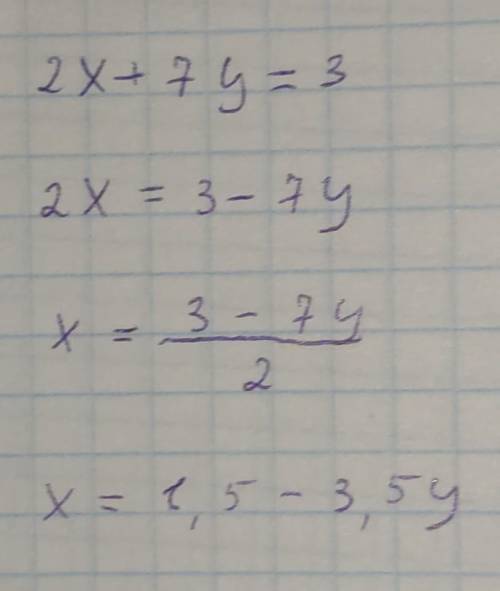 2x + 7y = 3
2x = 3 - 7y
x = \frac{3 - 7y}{2}
x = 1,5 - 3,5y